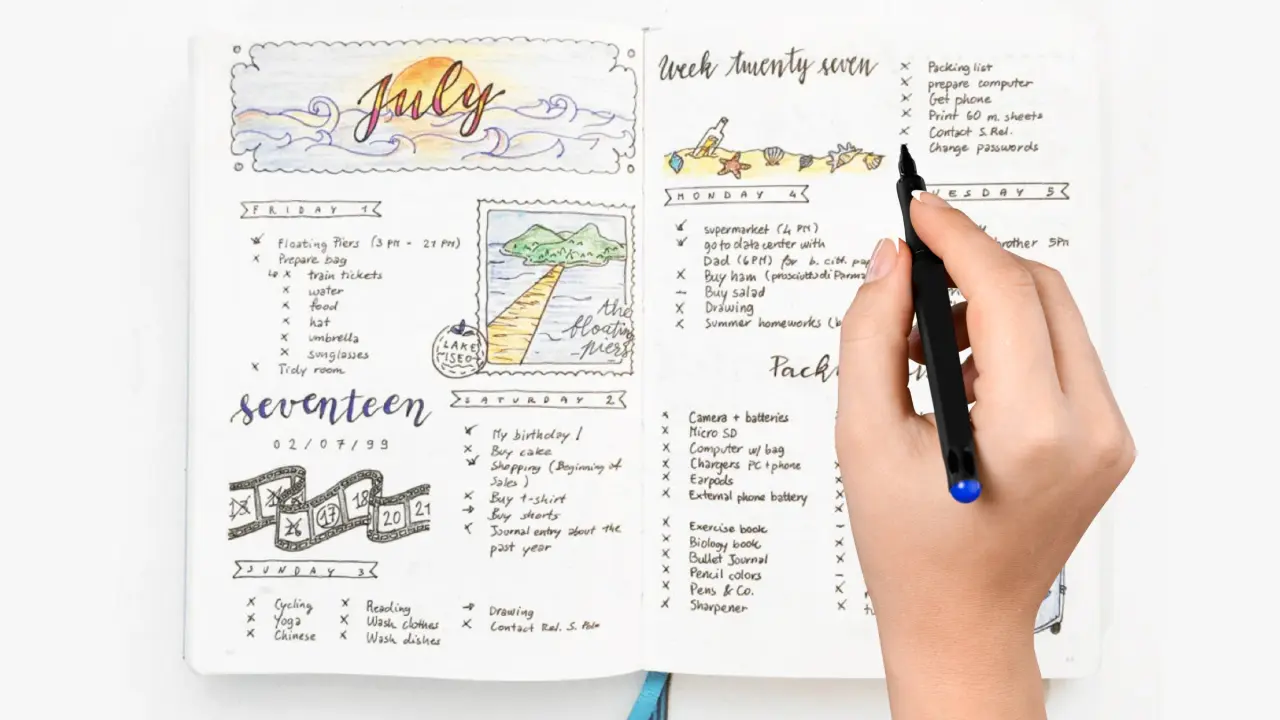 July
FRIDAY 1
Floating Piers (3 PM - 21 PM)
Prepare bag
train tickets
water
food
hat
umbrella
sunglasses
Tidy room
the
floating
piers
LAKE
ISEO
seventeen
02/07/99
16
17
18
20
21
SATURDAY 2
My birthday!
Buy cake
Shopping (Beginning of
Sales)
Buy t-shirt
Buy shorts
Journal entry about the
past year
SUNDAY 3
Cycling
Yoga
Chinese
Reading
Wash clothes
Wash dishes
Drawing
Contact Rel. S. Polo
Week twenty seven
Packing list
prepare computer
Get phone
Print 60 m. sheets
Contact S. Rel.
Change passwords
MONDAY 4
supermarket (4 PM)
go to data center with
Dad (6PM) for b. cit. pap
Buy ham (prosciutto di Parma
Buy salad
Drawing
Summer homeworks (b
UESDAY 5
brother 5Pm
Pack
Camera + batteries
Micro SD
Computer w/ bag
Chargers PC + phone
Earpods
External phone battery
Exercise book
Biology book
Bullet Journal
Pencil colors
Pens & Co.
Sharpener